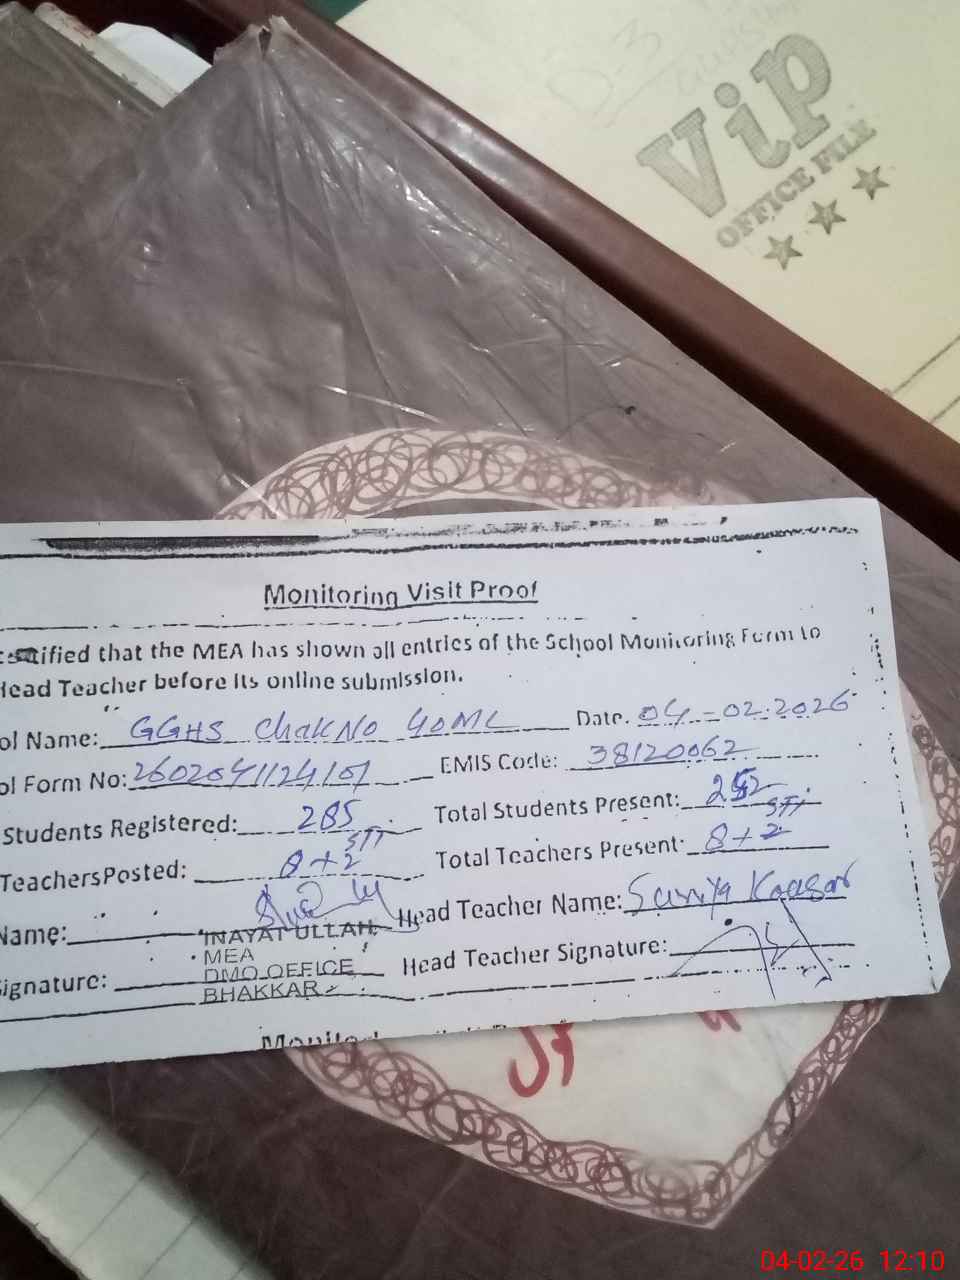 Vip
OFFICE FILE
Monitoring Visit Proof
tified that the MEA has shown all entries of the School Monitoring Form to
Head Teacher before its online submission.
ol Name: GGHS Chak No 40ML Date. 04-02-2026
ol Form No: EMIS Code: 38120062
Students Registered: 285 Total Students Present:
STI STI
TeachersPosted: 8+2 Total Teachers Present: 8+2
Name: Head Teacher Name: Suriya Kaasar
INAYAT ULLAH
MEA
ignature: DMO OFFICE Head Teacher Signature:
BHAKKAR
04-02-26 12:10